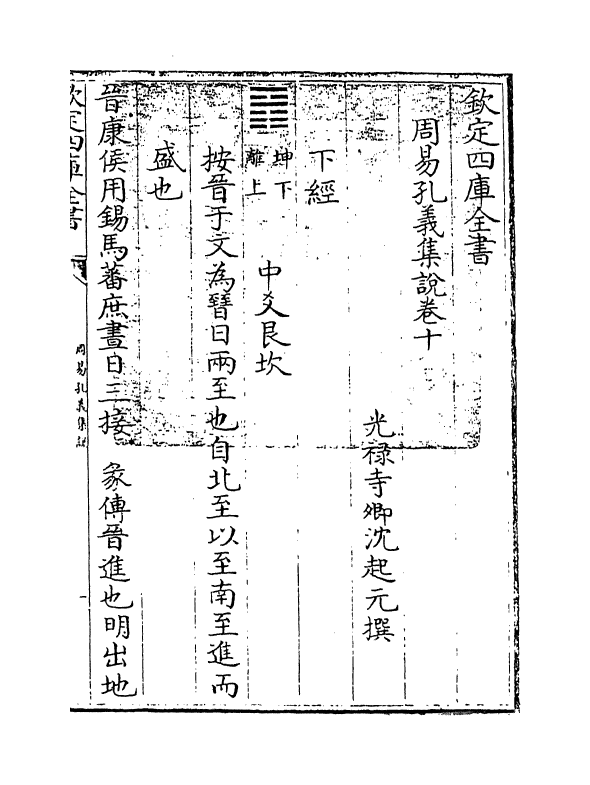 欽定四庫全書
周易孔義集說卷十
光禄寺卿沈起元撰
下經
坤下
離上
中爻艮坎
按晉于文為𣈆日兩至也自北至以至南至進而
盛也
晉康侯用錫馬蕃庶晝日三接　彖傳晉進也明出地
欽定四庫全書
周易孔義集說